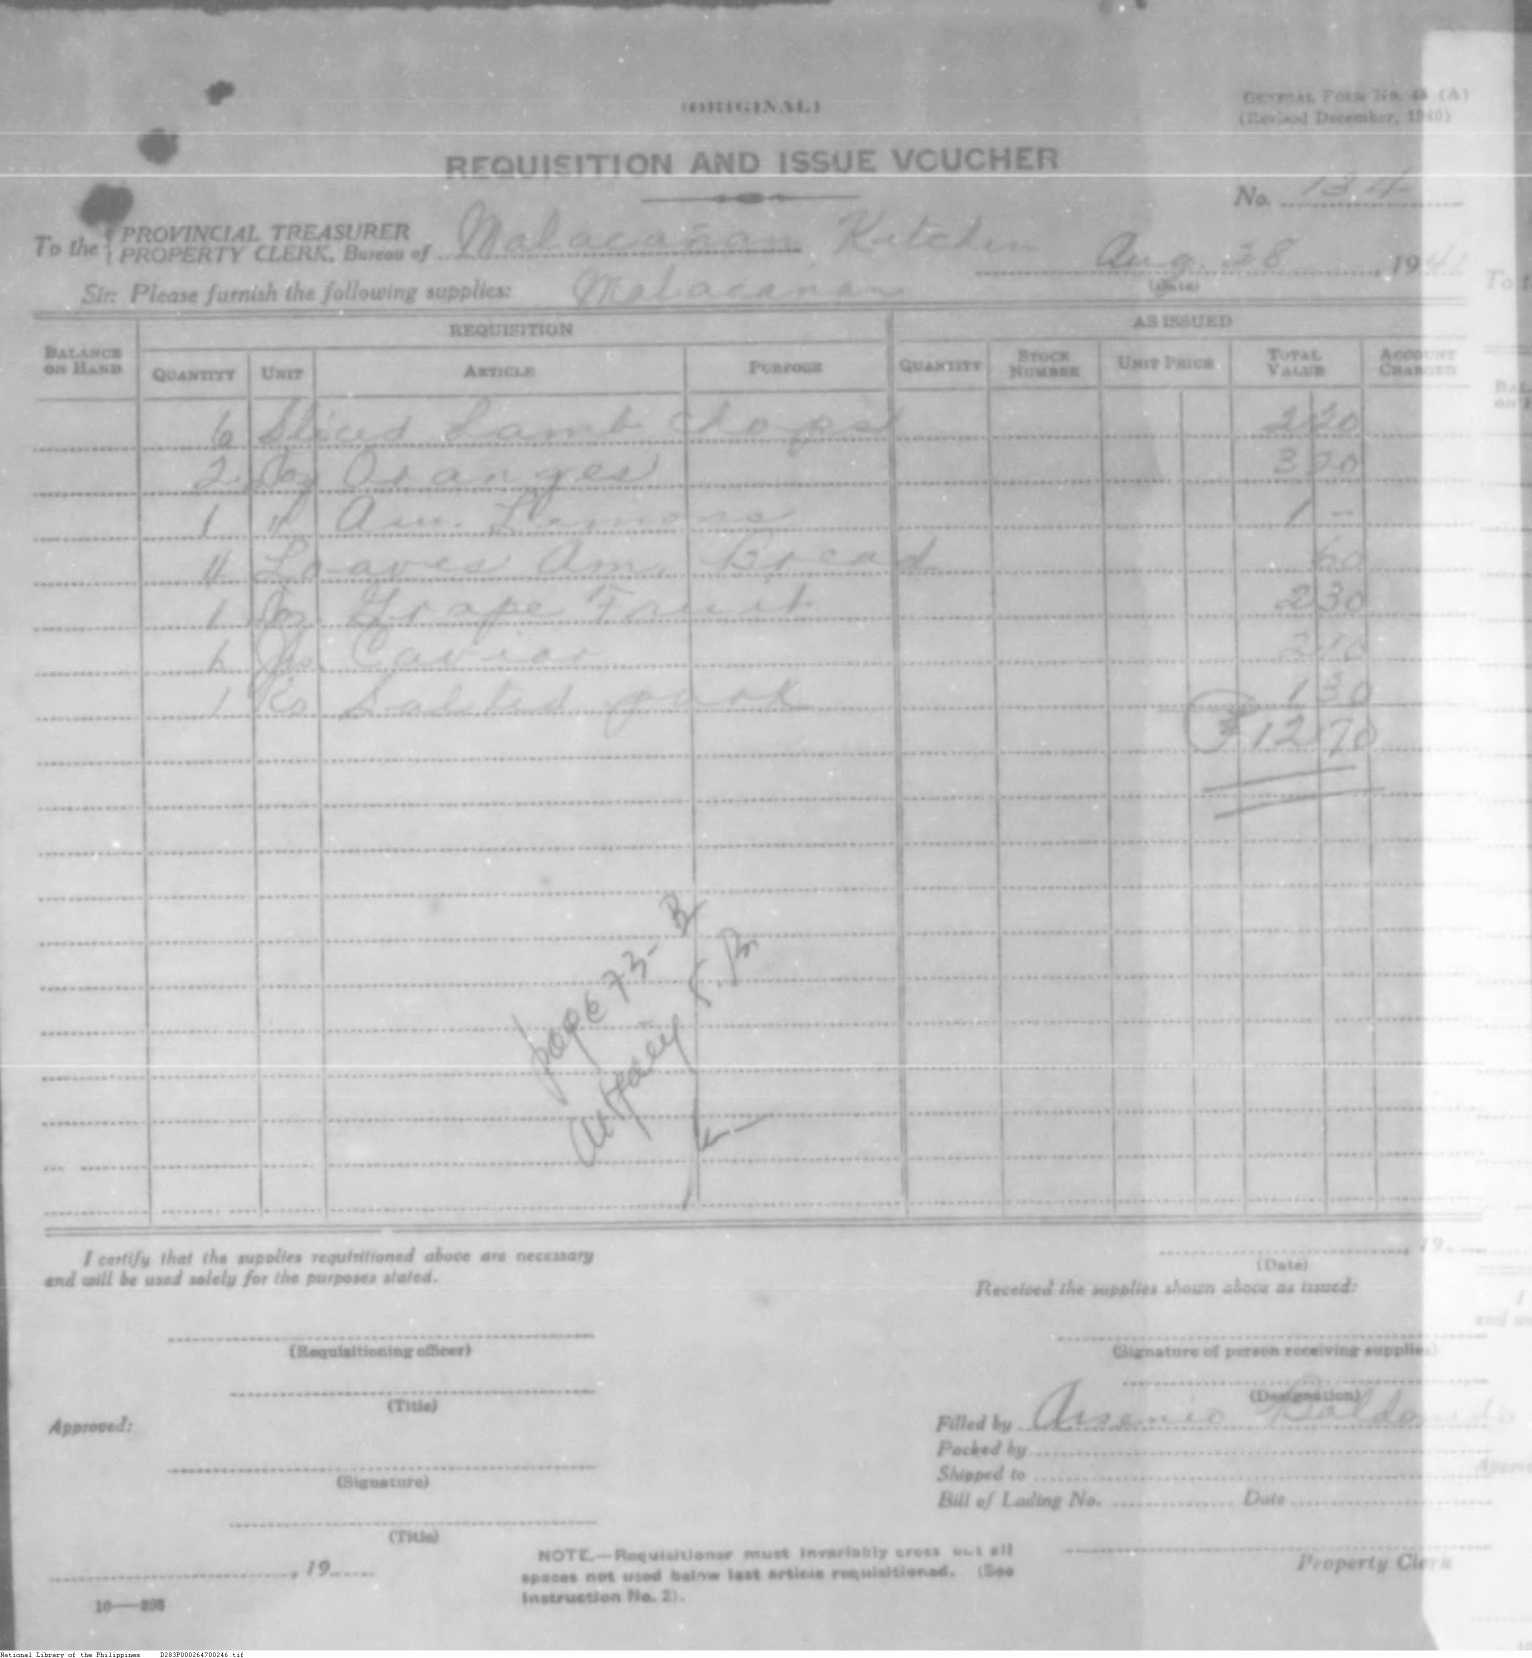 (ORIGINAL)
GENERAL FORM No. 45 (A)
(Revised December, 1940)
REQUISITION AND ISSUE VOUCHER
No. 134
To the { PROVINCIAL TREASURER
PROPERTY CLERK, Bureau of Malacañan Kitchen
Aug. 28, 1941
(Date)
Sir: Please furnish the following supplies: Malacañan
REQUISITION AS ISSUED
BALANCE ON HAND QUANTITY UNIT ARTICLE PURPOSE QUANTITY STOCK NUMBER UNIT PRICE TOTAL VALUE ACCOUNT CHARGED
6 Slices Lamb Chops 2 20
2 Dz Oranges 3 20
1 " Am. Lemons 1 -
4 Loaves Am. bread 60
1 Dz Grape Fruit 2 30
1 Caviar 2 10
1 Ko Salted pork 1 30
₱12 70
page 73- B
I certify that the supplies requisitioned above are necessary
and will be used solely for the purposes stated.
, 19
(Date)
Received the supplies shown above as issued:
(Requisitioning officer)
(Signature of person receiving supplies)
(Title)
(Designation)
Approved:
Filled by Arsenio
Packed by
Shipped to
(Signature)
Bill of Lading No. Date
(Title)
, 19
NOTE.—Requisitioner must invariably cross out all
spaces not used below last article requisitioned. (See
Instruction No. 2).
Property Clerk
National Library of the Philippines D283P000264700246.tif